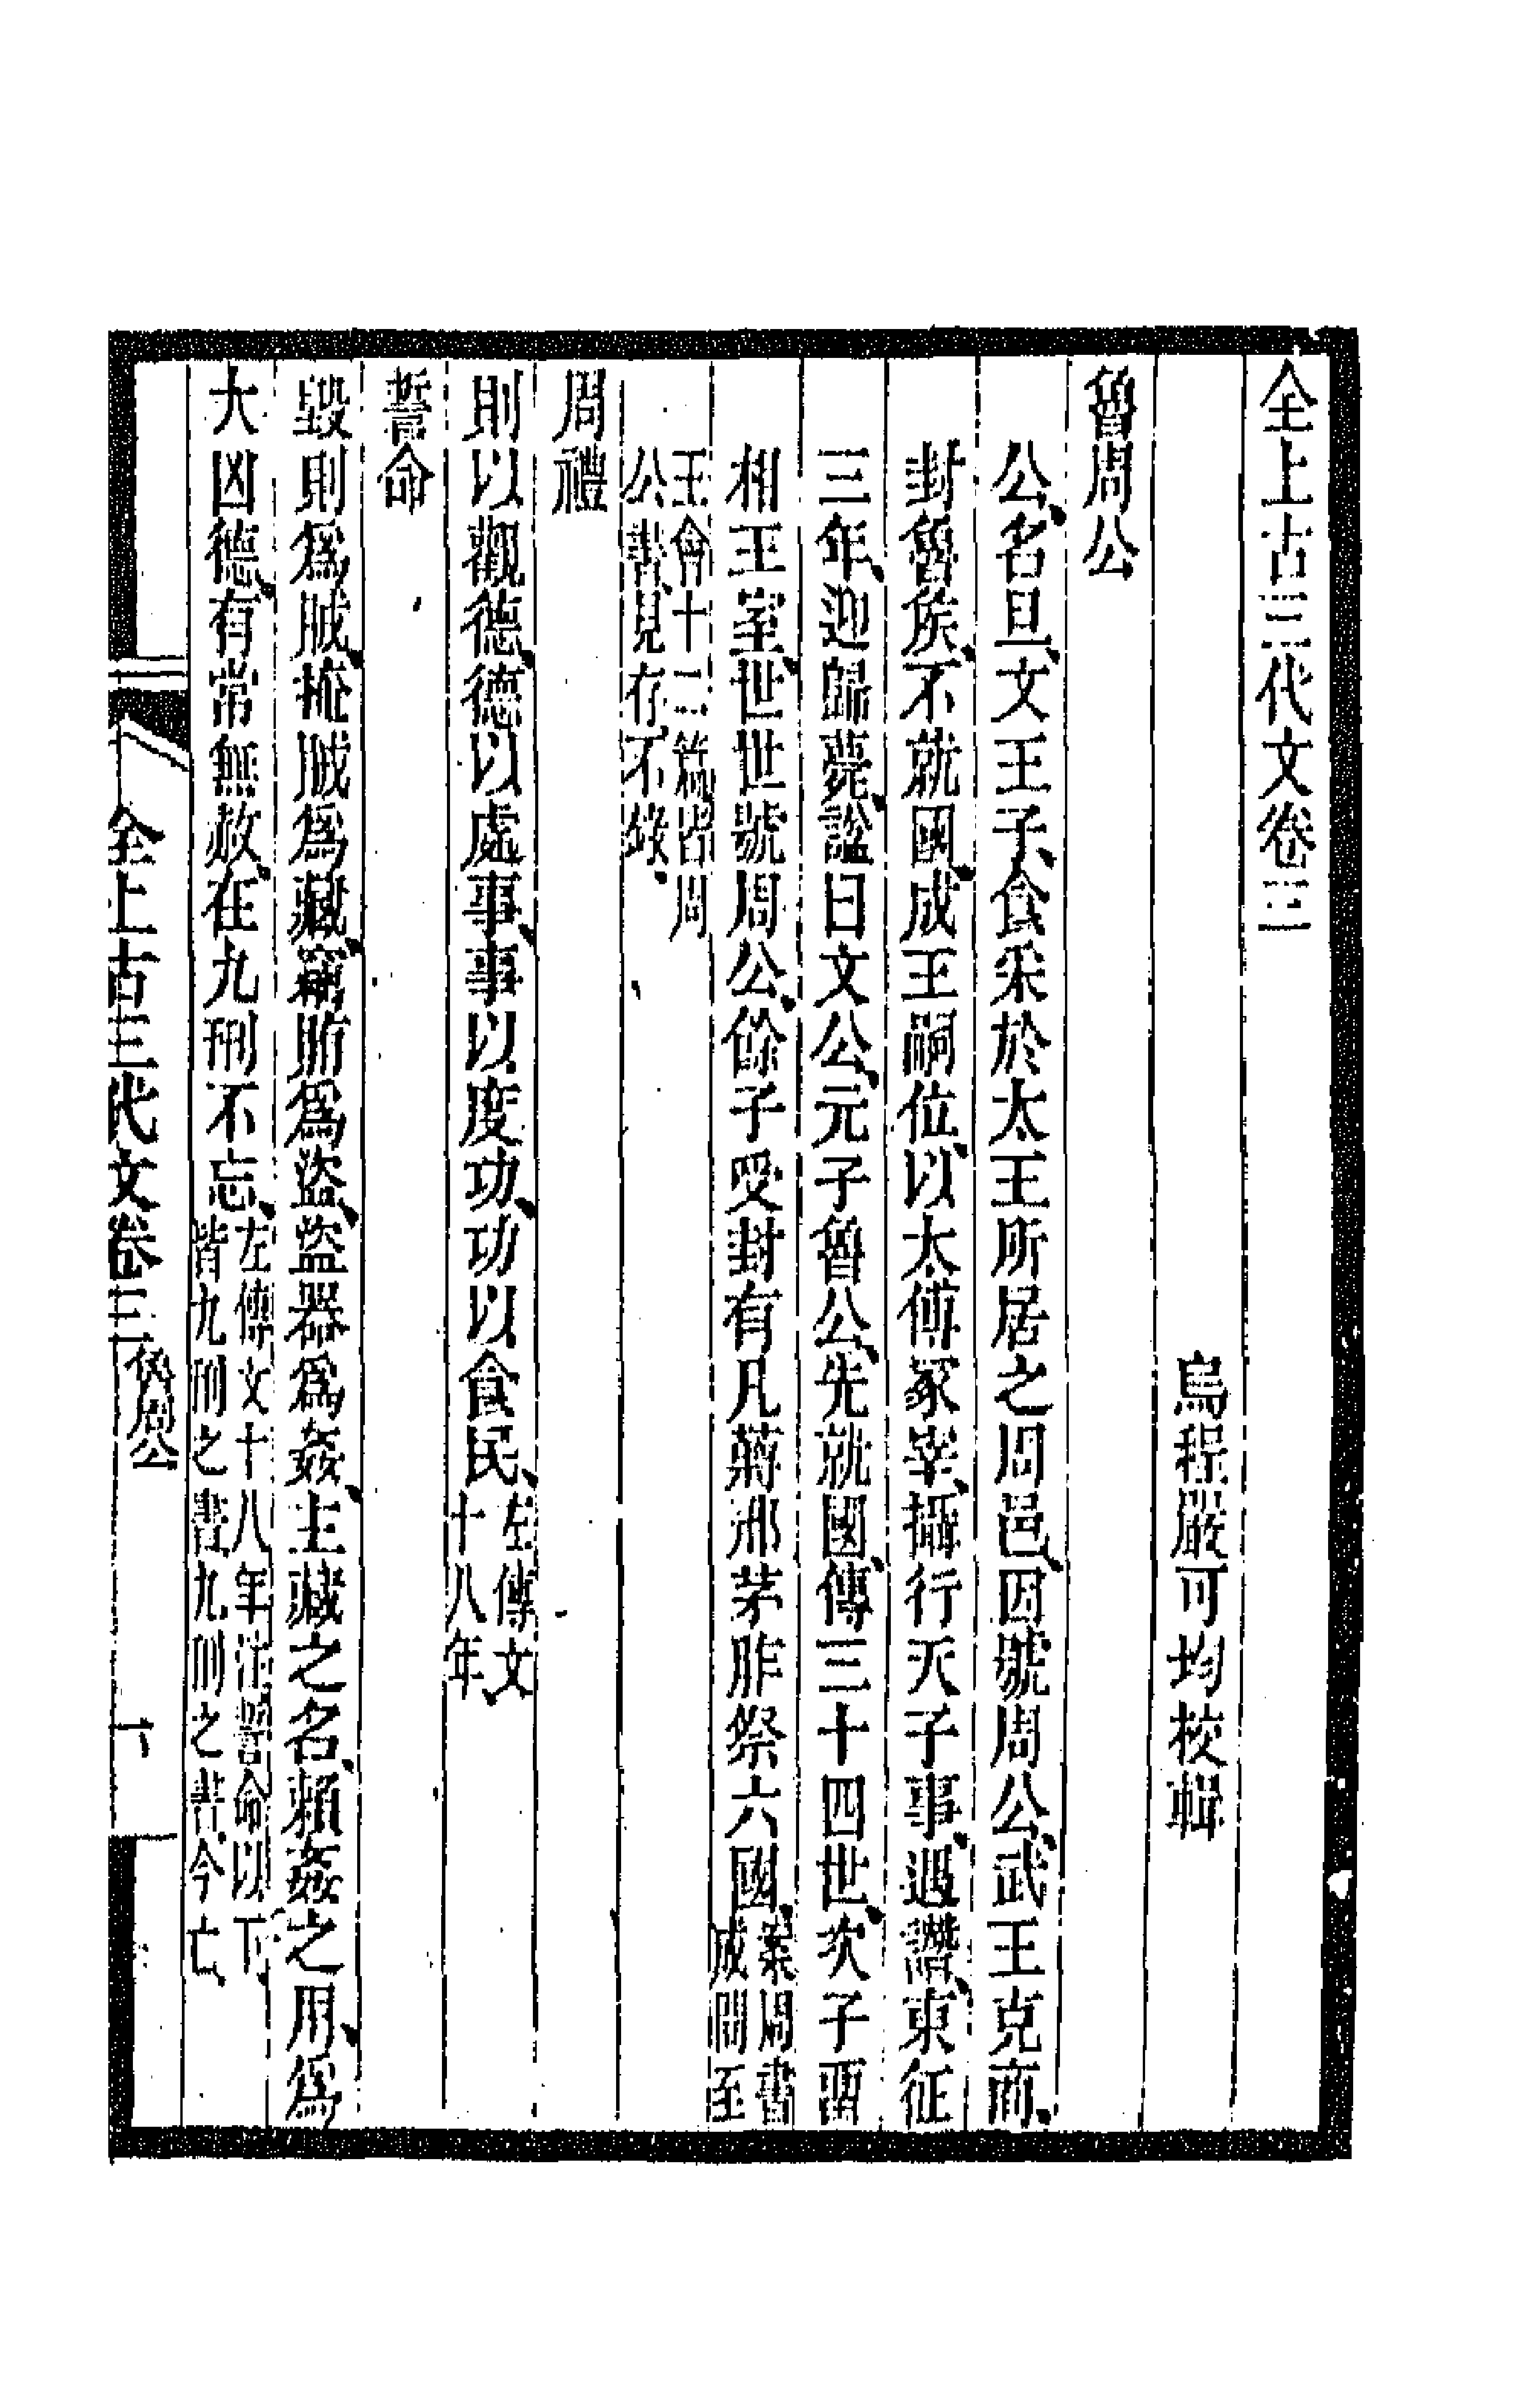 全上古三代文卷三
烏程嚴可均校輯
魯周公
公、名旦、文王子、食采於太王所居之周邑、因號周公、武王克商、
封魯侯、不就國、成王嗣位、以太傅冢宰、攝行天子事、遇譖、東征
三年、迎歸、薨、謚曰文公、元子魯公、先就國、傳三十四世、次子畱
相王室、世世號周公、餘子受封有凡蔣邢茅胙祭六國、案周書
成開至
王會十二篇皆周
公書、見存、不錄、
周禮
則以觀德、德以處事、事以度功、功以食民、左傳文
十八年、
誓命
毀則爲賊、掩賊爲藏、竊賄爲盜、盜器爲姦、主藏之名、賴姦之用、爲
大凶德、有常無赦、在九刑不忘、左傳文十八年注誓命以下、
皆九刑之書、九刑之書今亡、
全上古三代文卷三 周公 一